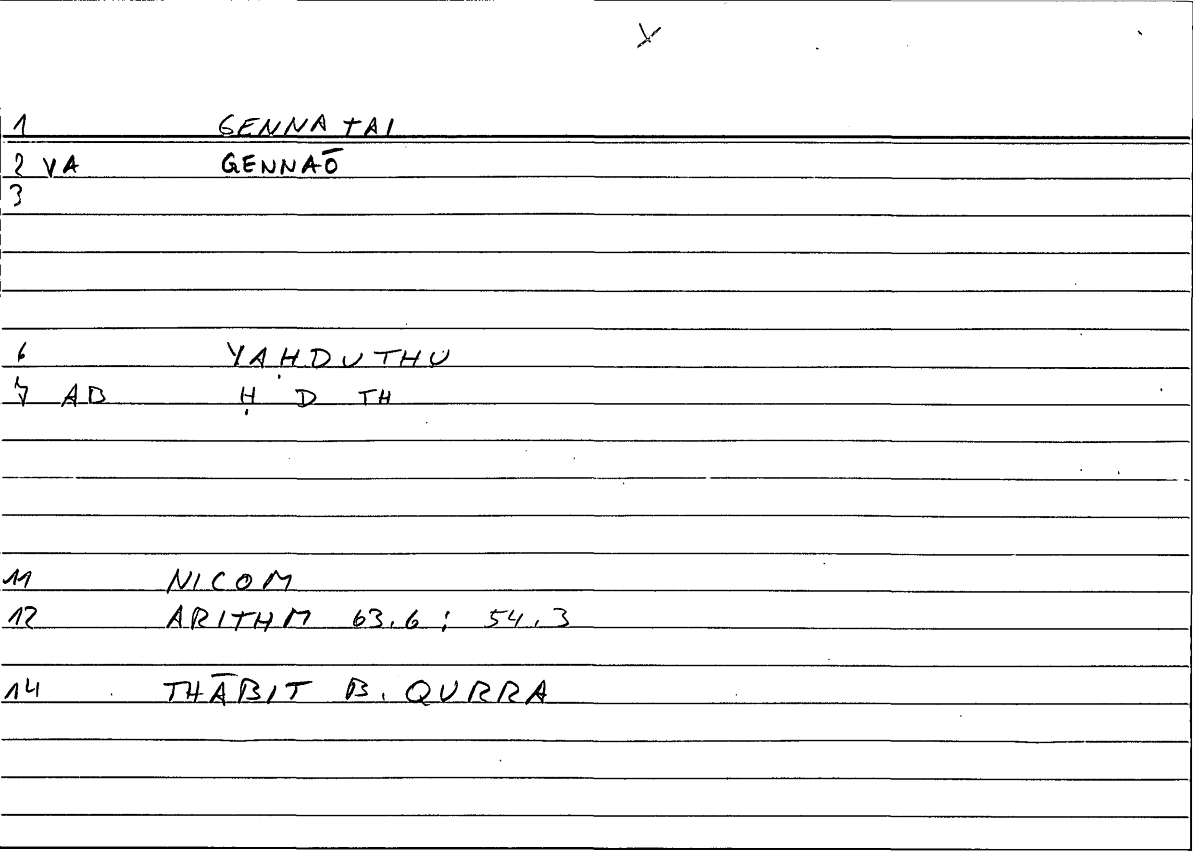 1 GENNATAI
2 VA GENNAŌ
3
6 YAḤDUTHU
7 AB Ḥ D TH
11 NICOM
12 ARITHM 63.6 ; 54.3
14 THĀBIT B. QURRA